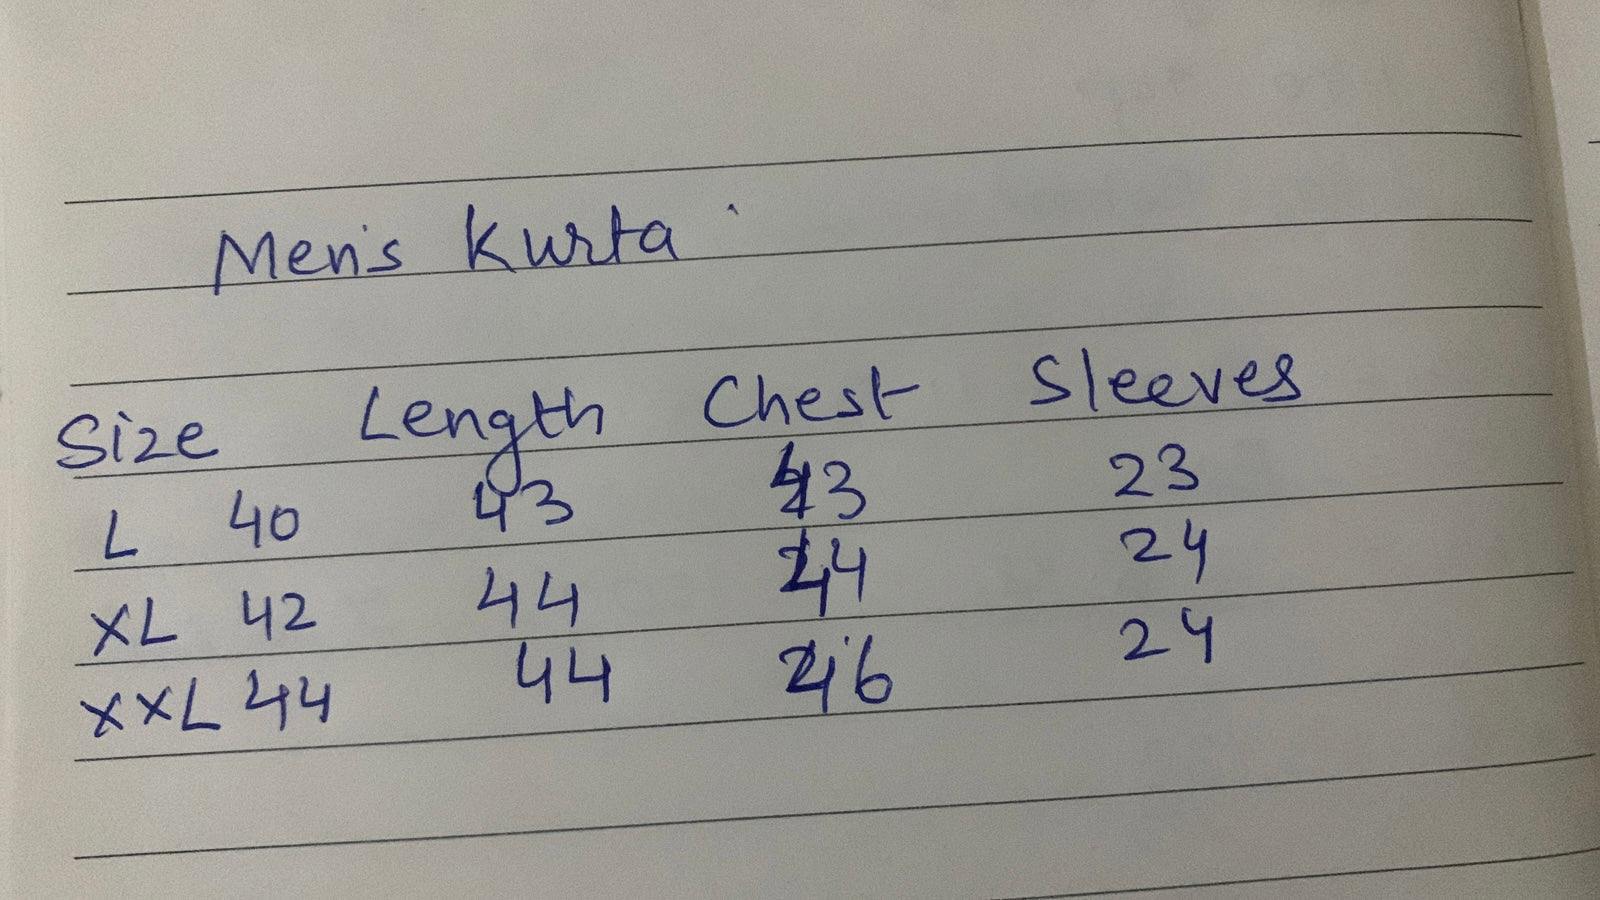 Men's Kurta
Size Length Chest Sleeves
L 40 43 43 23
XL 42 44 44 24
XXL 44 44 46 24